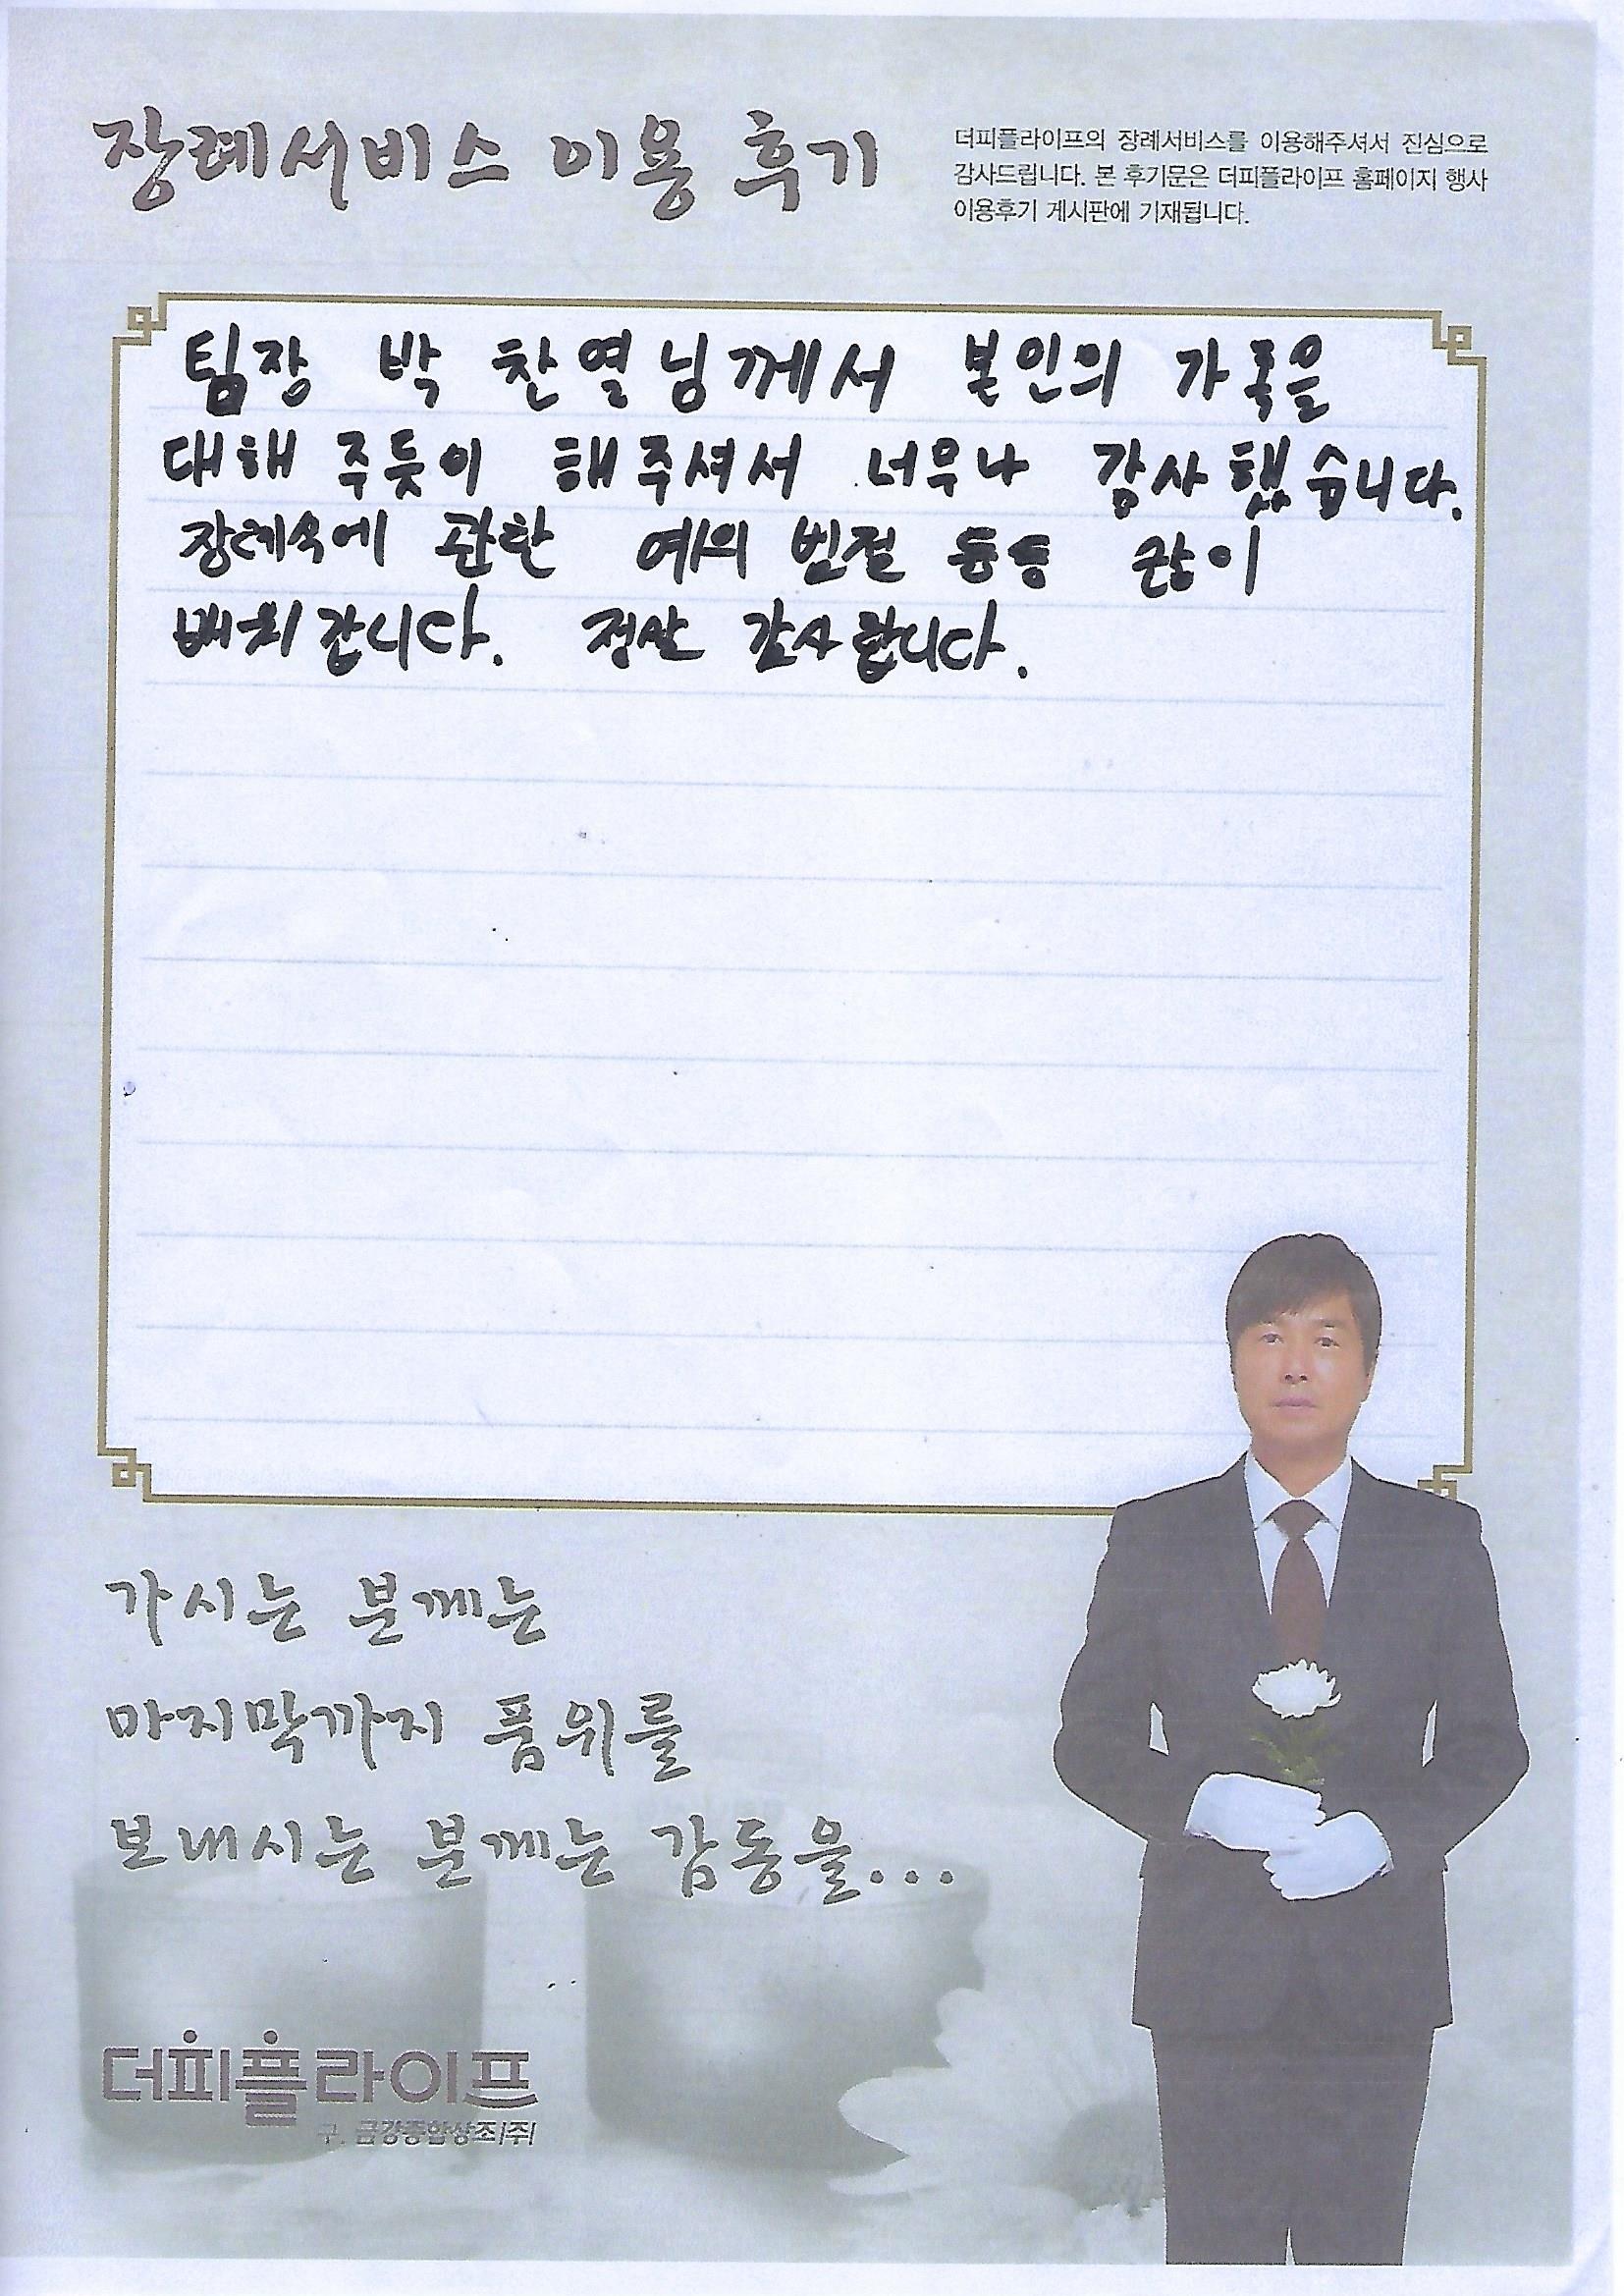 장례서비스 이용 후기
더피플라이프의 장례서비스를 이용해주셔서 진심으로
감사드립니다. 본 후기문은 더피플라이프 홈페이지 행사
이용후기 게시판에 기재됩니다.
팀장 박 찬열님께서 본인의 가족을
대해 주듯이 해주셔서 너무나 감사했습니다.
장례식에 관한 예의 범절 등등 많이
배워갑니다. 정말 감사합니다.
가시는 분께는
마지막까지 품위를
보내시는 분께는 감동을...
더피플라이프
구. 금강종합상조(주)